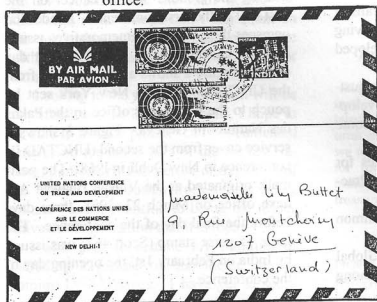 office.
BY AIR MAIL
PAR AVION
15
15
INDIA
UNITED NATIONS CONFERENCE
ON TRADE AND DEVELOPMENT
CONFÉRENCE DES NATIONS UNIES
SUR LE COMMERCE
ET LE DÉVELOPPEMENT
NEW DELHI
Mademoiselle Lily Buttet
9, Rue Montchoisy
1207 Genève
(Switzerland)